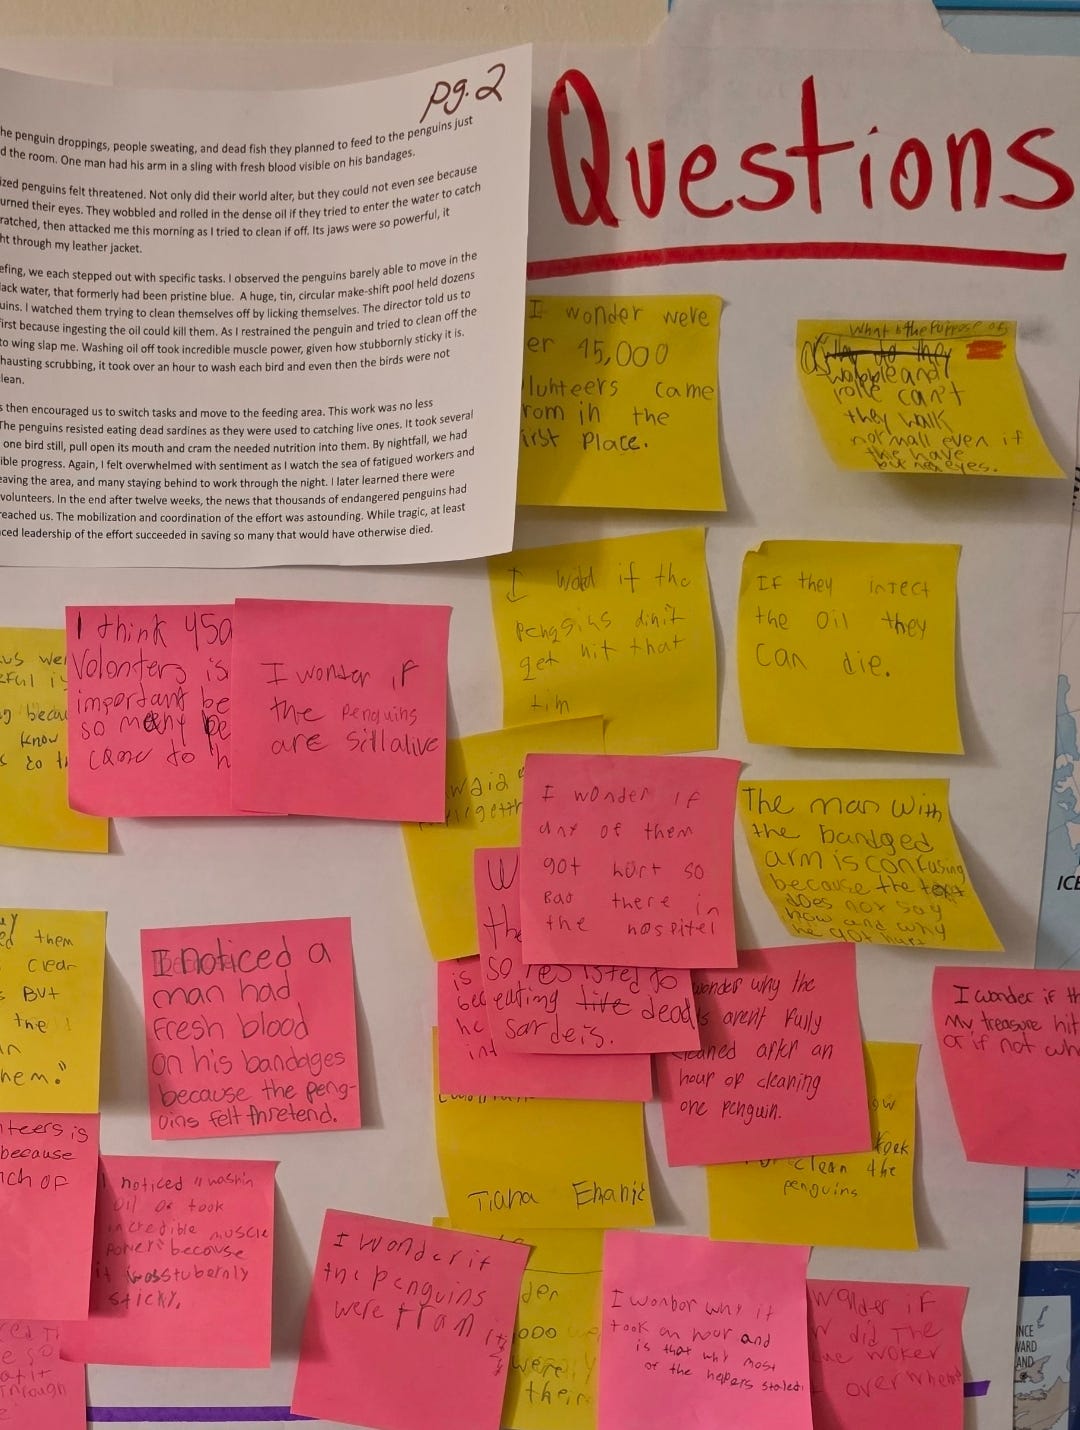 pg.2
he penguin droppings, people sweating, and dead fish they planned to feed to the penguins just
d the room. One man had his arm in a sling with fresh blood visible on his bandages.
ized penguins felt threatened. Not only did their world alter, but they could not even see because
urned their eyes. They wobbled and rolled in the dense oil if they tried to enter the water to catch
ratched, then attacked me this morning as I tried to clean if off. Its jaws were so powerful, it
ht through my leather jacket.
efing, we each stepped out with specific tasks. I observed the penguins barely able to move in the
lack water, that formerly had been pristine blue. A huge, tin, circular make-shift pool held dozens
uins. I watched them trying to clean themselves off by licking themselves. The director told us to
irst because ingesting the oil could kill them. As I restrained the penguin and tried to clean off the
to wing slap me. Washing oil off took incredible muscle power, given how stubbornly sticky it is.
hausting scrubbing, it took over an hour to wash each bird and even then the birds were not
lean.
s then encouraged us to switch tasks and move to the feeding area. This work was no less
The penguins resisted eating dead sardines as they were used to catching live ones. It took several
one bird still, pull open its mouth and cram the needed nutrition into them. By nightfall, we had
ible progress. Again, I felt overwhelmed with sentiment as I watch the sea of fatigued workers and
eaving the area, and many staying behind to work through the night. I later learned there were
volunteers. In the end after twelve weeks, the news that thousands of endangered penguins had
reached us. The mobilization and coordination of the effort was astounding. While tragic, at least
ced leadership of the effort succeeded in saving so many that would have otherwise died.
Questions
I wonder were
er 45,000
lunteers came
rom in the
irst Place.
What is the Purpose of
do they
wobble and
rolle can't
they walk
normall even if
the have
burned eyes.
I wod if the
pengsins dinit
get hit that
tim
If they inject
the Oil they
can die.
I think 450
Volonters is
important be
so meany pe
came to h
I wonder if
the penguins
are sillalive
I wonder if
any of them
got hurt so
Bad there in
the hospitel
The man with
the bandged
arm is confusing
because the text
does not say
how and why
he got hurt
them
clear
BVt
the
hem."
I noticed a
man had
Fresh blood
on his bandages
because the peng-
uins felt thretend.
W
the
so resisted to
eating live dead
sardeis.
is
bec
he
int
wonder why the
s arent fully
cleaned after an
hour of cleaning
one penguin.
I wonder if th
My treasure hit
or if not wh
ow
clean the
penguins
Tiana Ehanic
nteers is
because
nch of
I noticed "washin
oil of took
incredible muscle
power" because
it was stubernly
sticky.
I wonder if
the penguins
were fram
der
000
were
their
I wonbor why it
took an hour and
is that why most
of the helpers stoled
wonder if
did the
woker
overwhem
ICE